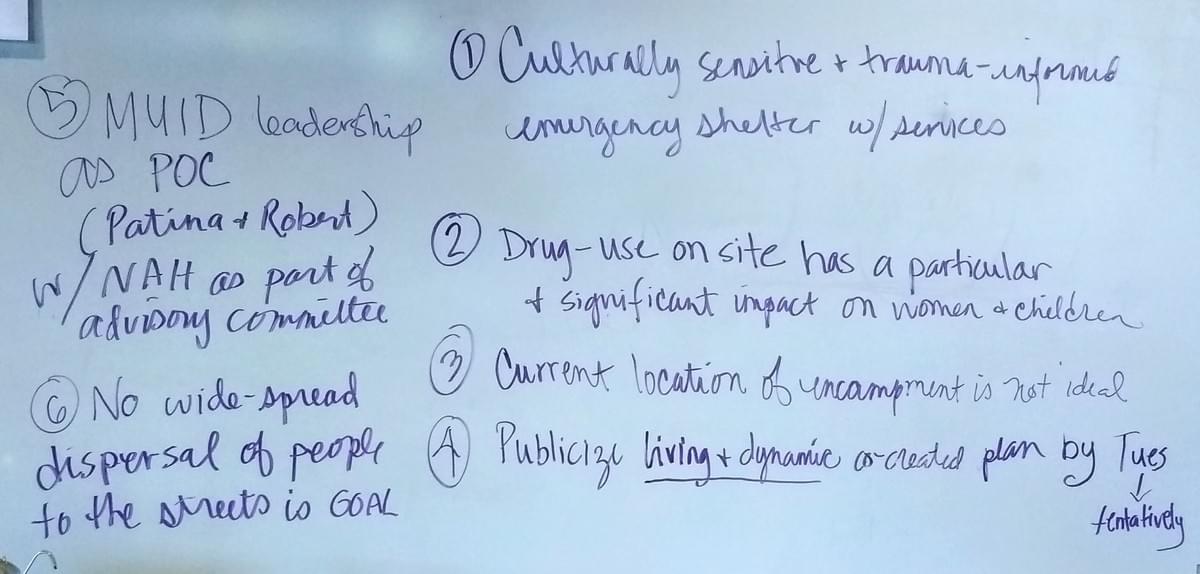 ① Culturally sensitive + trauma-informed
emergency shelter w/ services
② Drug-use on site has a particular
+ significant impact on women + children
③ Current location of encampment is not ideal
④ Publicize living + dynamic co-created plan by Tues
↓
tentatively
⑤ MUID leadership
as POC
(Patina + Robert)
w/ NAH as part of
advisory committee
⑥ No wide-spread
dispersal of people
to the streets is GOAL